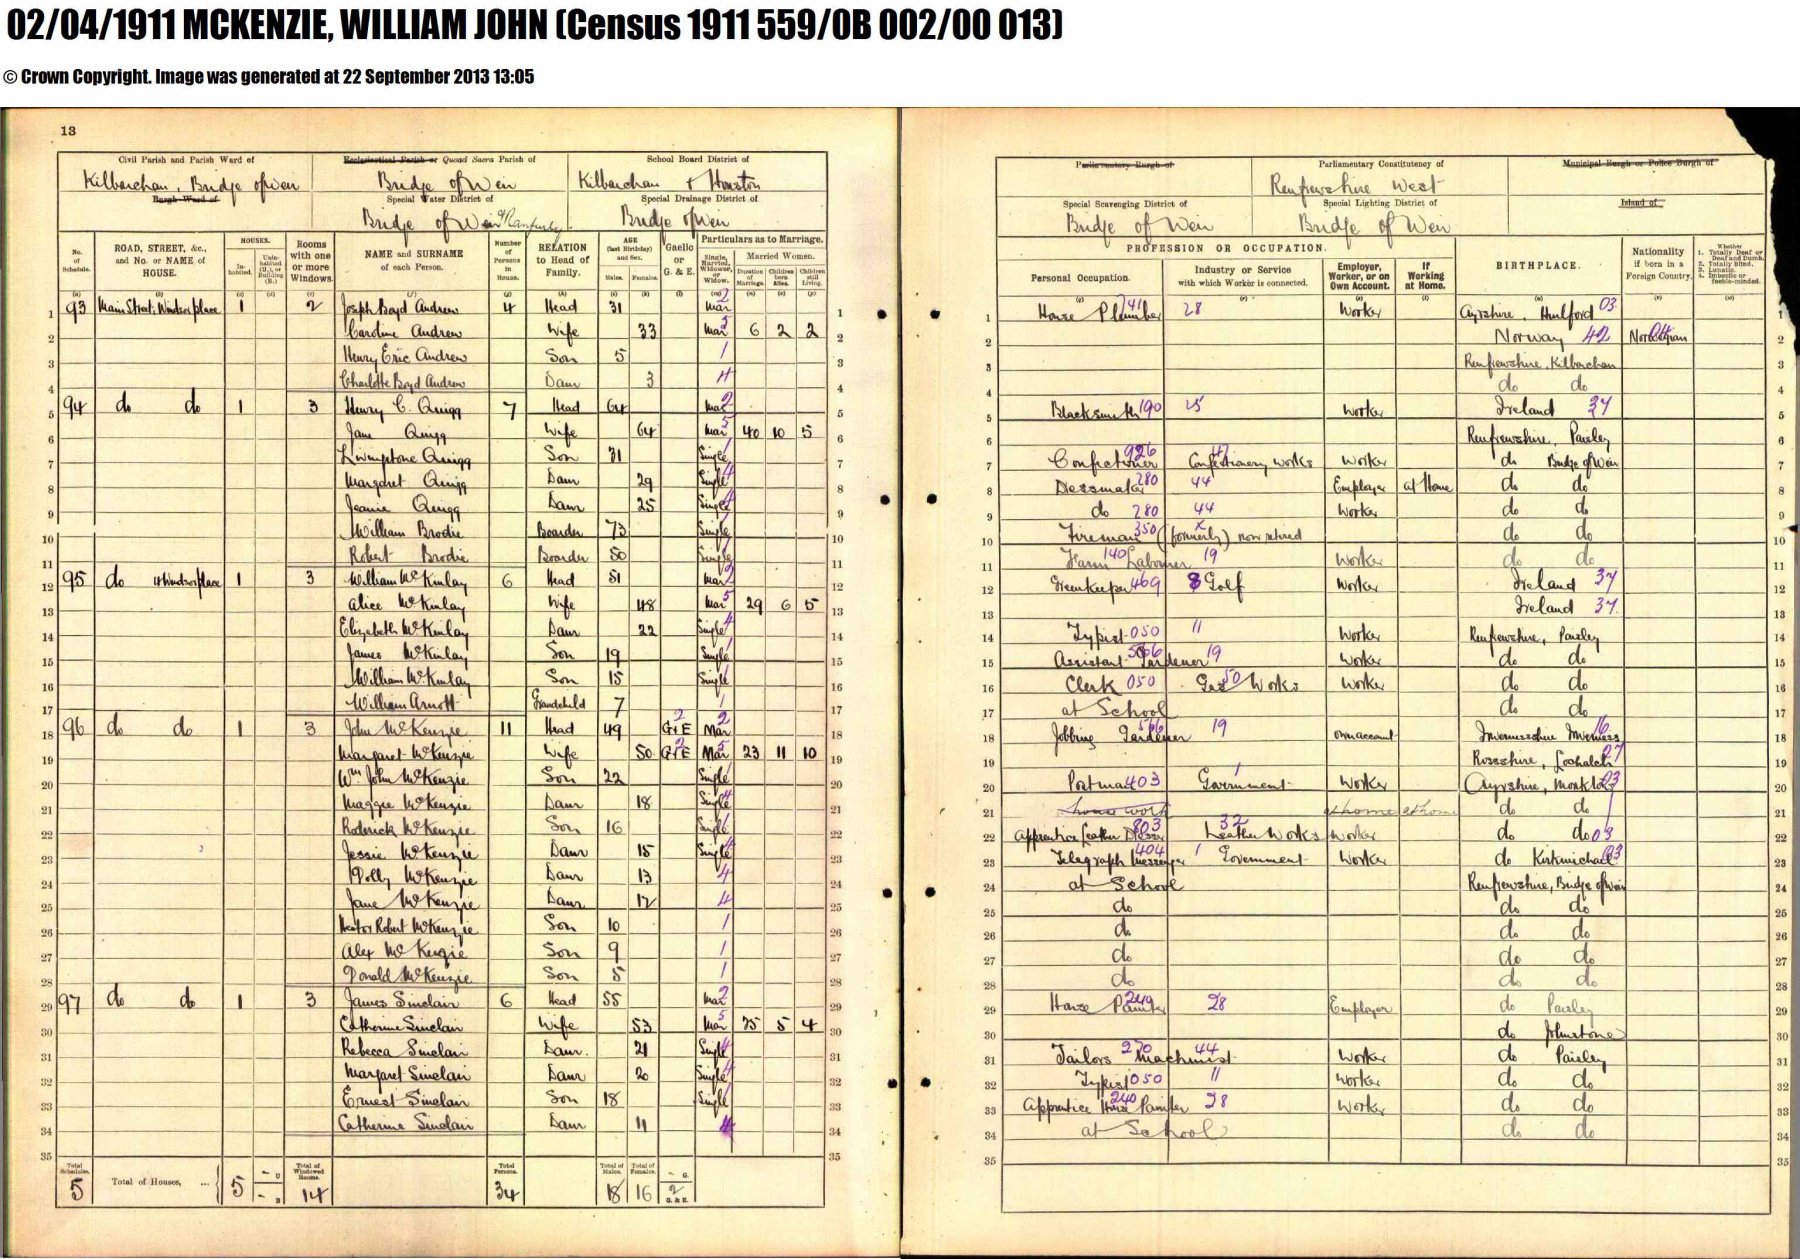 02/04/1911 MCKENZIE, WILLIAM JOHN (Census 1911 559/0B 002/00 013)
© Crown Copyright. Image was generated at 22 September 2013 13:05
13
Civil Parish and Parish Ward of Ecclesiastical Parish or Quoad Sacra Parish of School Board District of
Kilbarchan, Bridge of Weir Bridge of Weir Kilbarchan & Houston
Burgh Ward of Special Water District of Special Drainage District of
Bridge of Weir & Ranfurly Bridge of Weir
No. of Schedule. ROAD, STREET, &c., and No. or NAME of HOUSE. HOUSES. Inhabited. Uninhabited (U.), or Building (B.) Rooms with one or more Windows. NAME and SURNAME of each Person. Number of Persons in House. RELATION to Head of Family. AGE (last Birthday) and Sex. Males. Females. Gaelic or G. & E. Particulars as to Marriage. Single, Married, Widower, or Widow. Married Women. Duration of Marriage. Children born Alive. Children still Living.
1 93 Main Street, Windsor place 1 2 Joseph Boyd Andrew 4 Head 31 Mar 2 1
2 Caroline Andrew Wife 33 Mar 5 6 2 2 2
3 Henry Eric Andrew Son 5 1 3
4 Charlotte Boyd Andrew Daur 3 4 4
5 94 do do 1 3 Henry C. Quigg 7 Head 64 Mar 2 5
6 Jane Quigg Wife 64 Mar 5 40 10 5 6
7 Livingstone Quigg Son 31 Single 1 7
8 Margaret Quigg Daur 29 Single 4 8
9 Jeanie Quigg Daur 25 Single 4 9
10 William Brodie Boarder 73 Single 1 10
11 Robert Brodie Boarder 50 Single 1 11
12 95 do 4 Windsor place 1 3 William McKinlay 6 Head 51 Mar 2 12
13 Alice McKinlay Wife 48 Mar 5 29 6 5 13
14 Elizabeth McKinlay Daur 22 Single 4 14
15 James McKinlay Son 19 Single 1 15
16 William McKinlay Son 15 Single 1 16
17 William Arnott Grandchild 7 1 17
18 96 do do 1 3 John McKenzie 11 Head 49 G+E 2 Mar 2 18
19 Margaret McKenzie Wife 50 G+E 2 Mar 5 23 11 10 19
20 Wm John McKenzie Son 22 Single 1 20
21 Maggie McKenzie Daur 18 Single 4 21
22 Roderick McKenzie Son 16 Single 1 22
23 Jessie McKenzie Daur 15 Single 4 23
24 Dolly McKenzie Daur 13 4 24
25 Jane McKenzie Daur 12 4 25
26 Hector Robert McKenzie Son 10 1 26
27 Alex McKenzie Son 9 1 27
28 Donald McKenzie Son 5 1 28
29 97 do do 1 3 James Sinclair 6 Head 55 Mar 2 29
30 Catherine Sinclair Wife 53 Mar 5 5 4 30
31 Rebecca Sinclair Daur. 21 Single 4 31
32 Margaret Sinclair Daur 20 Single 4 32
33 Ernest Sinclair Son 18 Single 1 33
34 Catherine Sinclair Daur 11 4 34
35 35
Total Schedules. 5 Total of Houses, ... 5 – U – B Total of Windowed Rooms. 14 Total Persons. 34 Total of Males. 18 Total of Females. 16 – G. 2 G. & E.
Parliamentary Burgh of Parliamentary Constituency of Municipal Burgh or Police Burgh of
Renfrewshire West
Special Scavenging District of Special Lighting District of Island of
Bridge of Weir Bridge of Weir
PROFESSION OR OCCUPATION. Personal Occupation. Industry or Service with which Worker is connected. Employer, Worker, or on Own Account. If Working at Home. BIRTHPLACE. Nationality if born in a Foreign Country. Whether 1. Totally Deaf or Deaf and Dumb. 2. Totally Blind. 3. Lunatic. 4. Imbecile or feeble-minded.
1 House Plumber 741 28 Worker Ayrshire, Hurlford 03 1
2 Norway 42 Norwegian 2
3 Renfrewshire, Kilbarchan 3
4 do do 4
5 Blacksmith 190 25 Worker Ireland 37 5
6 Renfrewshire, Paisley 6
7 Confectioner 926 Confectionery works 47 Worker do Bridge of Weir 7
8 Dressmaker 280 44 Employer at Home do do 8
9 do 280 44 Worker do do 9
10 Fireman 350 (formerly) now retired do do 10
11 Farm Labourer 140 19 Worker do do 11
12 Greenkeeper 469 Golf Worker Ireland 37 12
13 Ireland 37 13
14 Typist 050 11 Worker Renfrewshire, Paisley 14
15 Assistant Gardener 566 19 Worker do do 15
16 Clerk 050 Gas Works 50 Worker do do 16
17 at School do do 17
18 Jobbing Gardener 566 19 own account Invernesshire Inverness 16 18
19 Rossshire, 27 19
20 Postman 403 Government 1 Worker Ayrshire, Monkton 03 20
21 house work at home at home do do 21
22 Apprentice Leather Dresser 803 Leather Works 32 Worker do do 03 22
23 Telegraph Messenger 404 1 Government Worker do Kirkmichael 03 23
24 at School Renfrewshire, Bridge of Weir 24
25 do do do 25
26 do do do 26
27 do do do 27
28 do do do 28
29 House Painter 240 28 Employer do Paisley 29
30 do Johnstone 30
31 Tailors Machinist 270 44 Worker do Paisley 31
32 Typist 050 11 Worker do do 32
33 Apprentice House Painter 240 28 Worker do do 33
34 at School do do 34
35 35